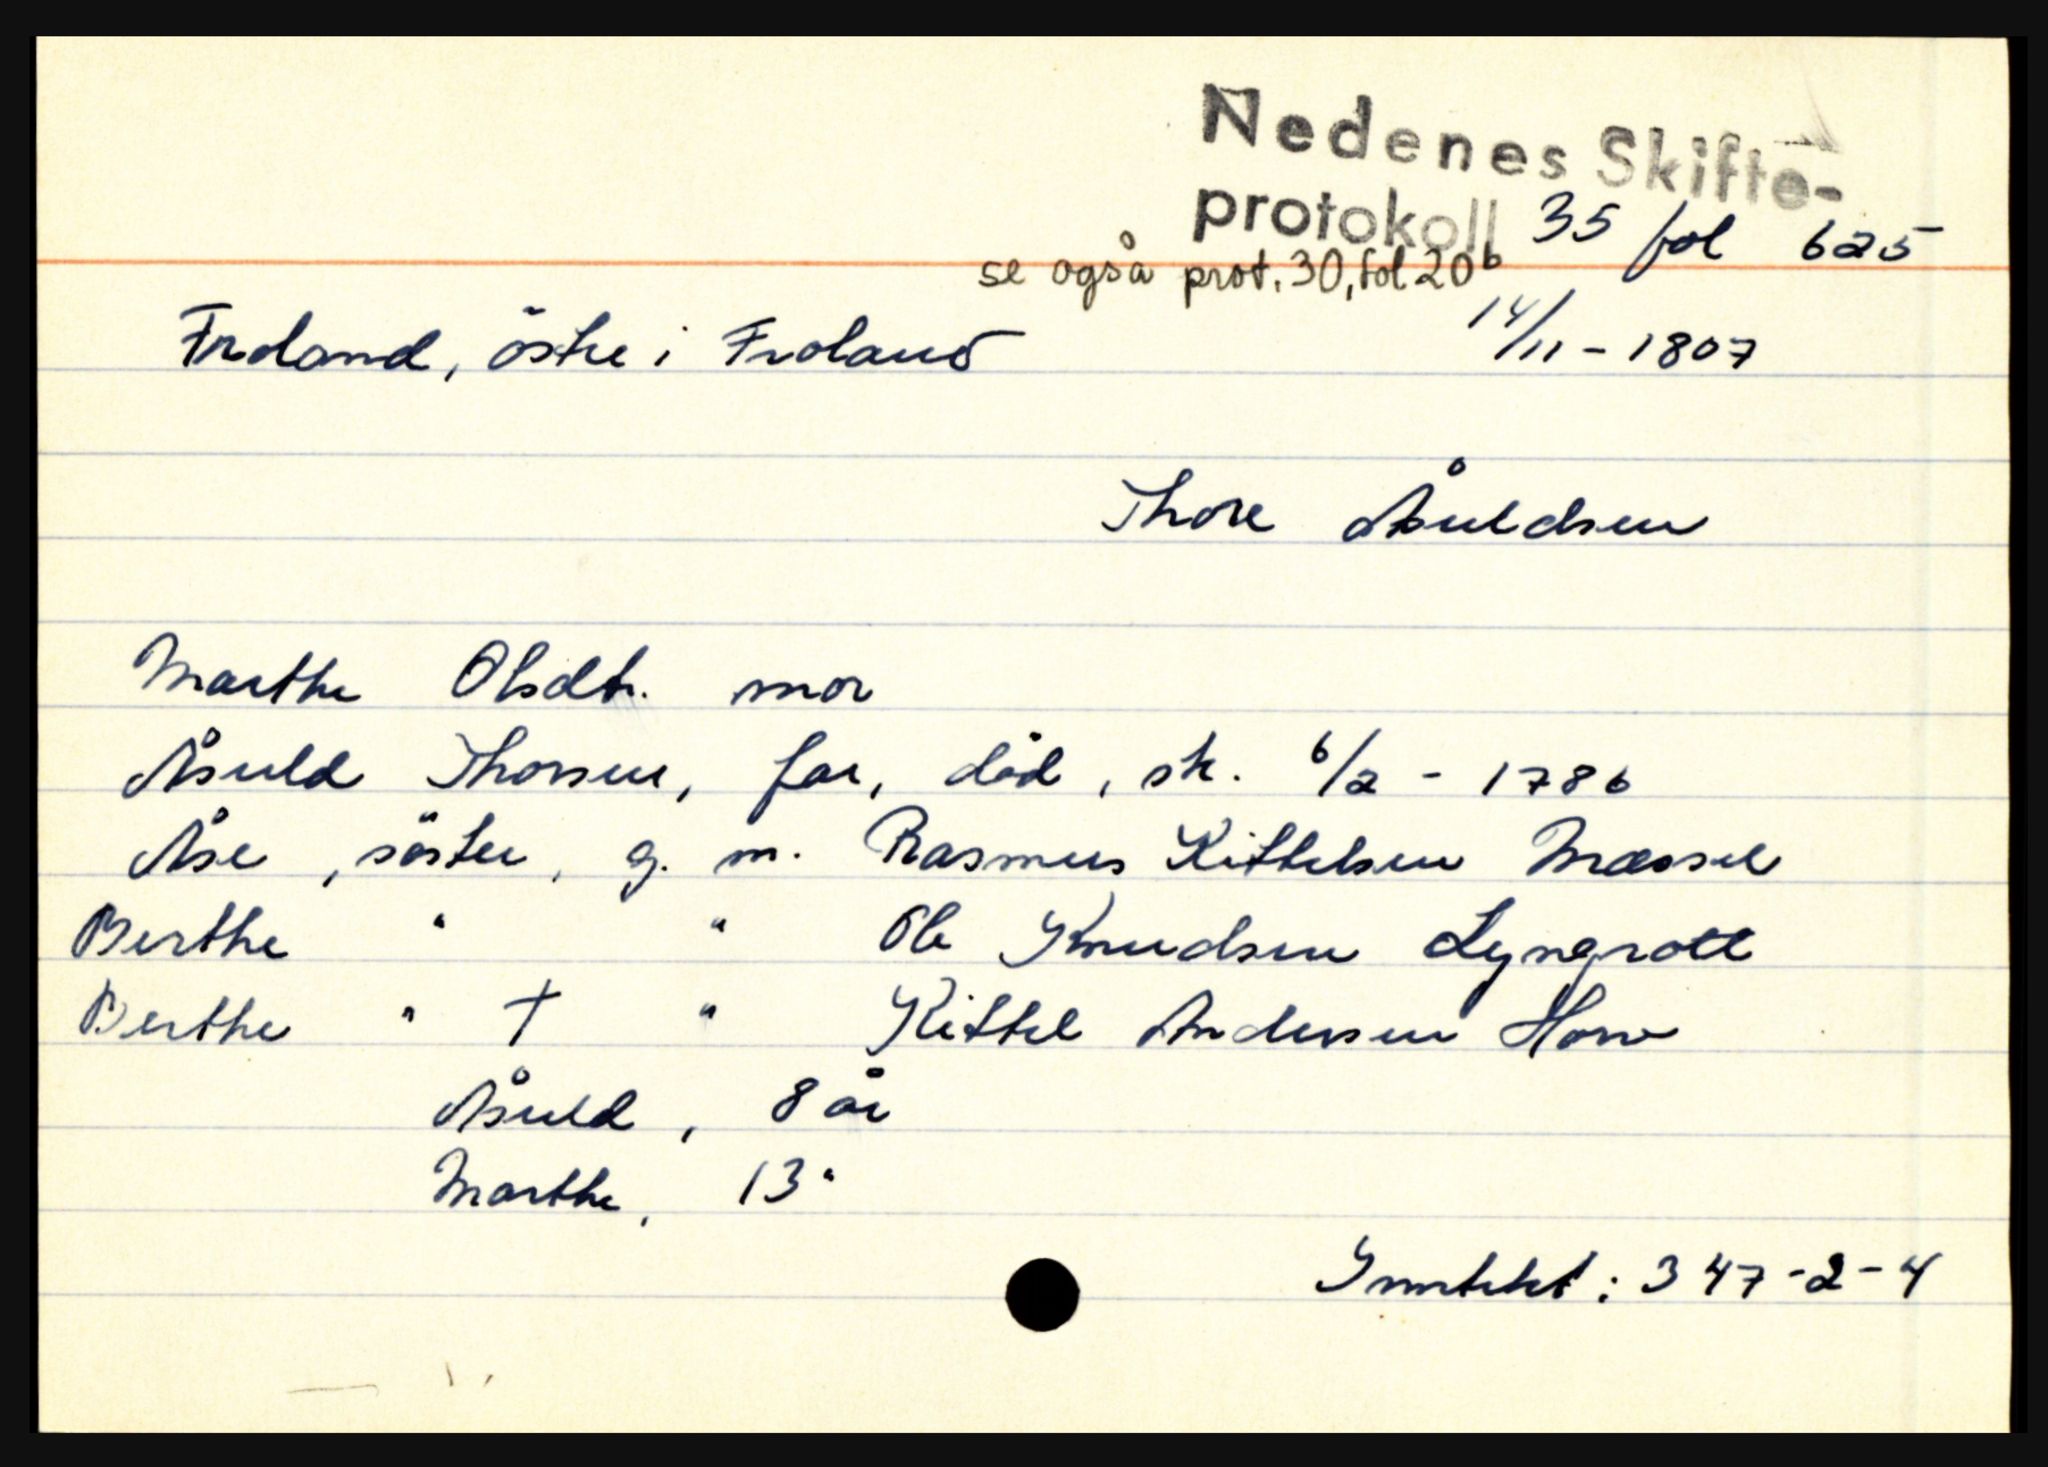 Nedenes Skifte-
protokoll 35 fol 625
se også prot. 30, fol 20b
14/11 - 1807
Froland, östre i Froland
Thore Åsuldsen
Marthe Olsdtr. mor
Åsuld Thorsen, far, död, sk. 6/2 - 1786
Åse, söster, g. m. Rasmus Kittelsen Mæssel
Berthe " " Ole Knudsen Lyngrott
Berthe " † " Kittel Andersen
Åsuld, 8 år
Marthe, 13 "
Inntekt: 347-2-4